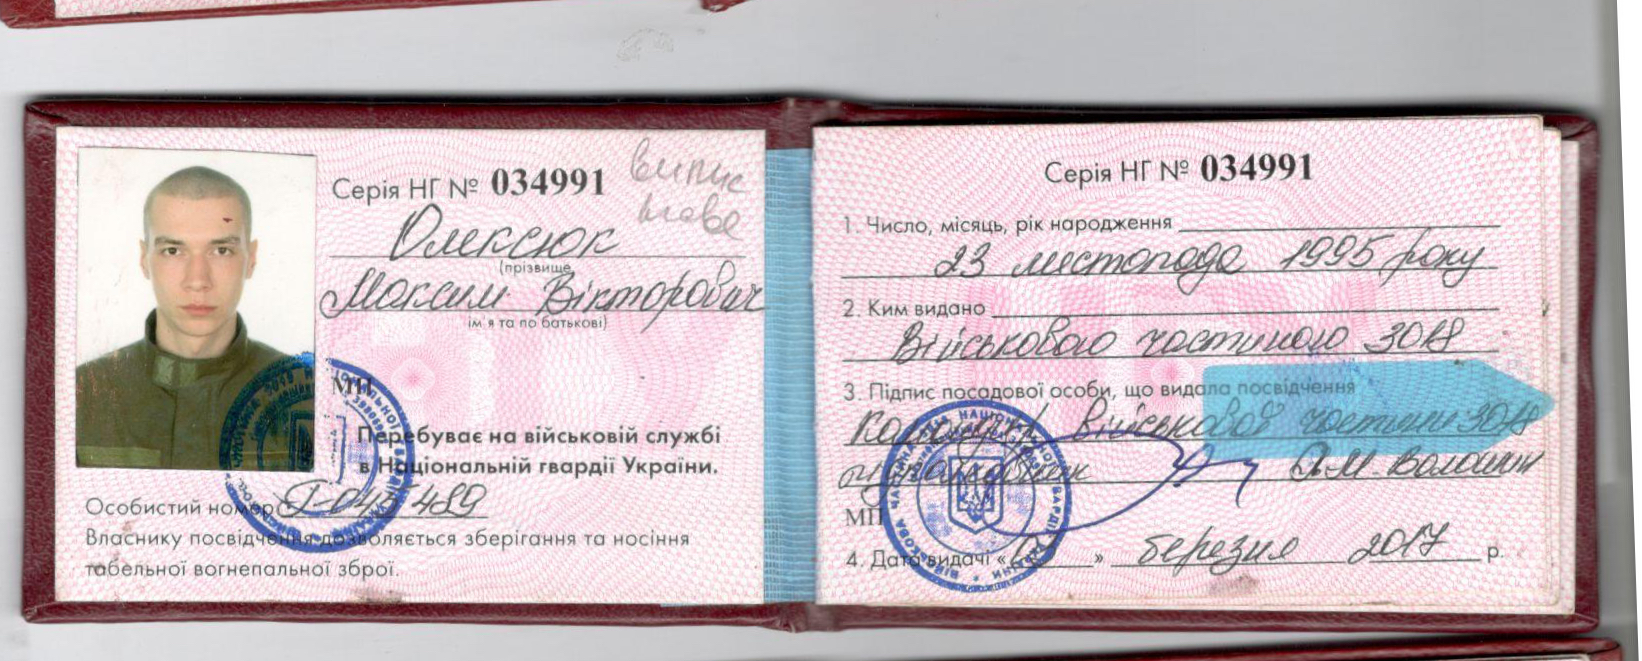 Серія НГ № 034991
випис
Олексюк
(прізвище,
Максим Вікторович
ім'я та по батькові)
МП
Перебуває на військовій службі
в Національній гвардії України.
Особистий номер
Власнику посвідчення дозволяється зберігання та носіння
табельної вогнепальної зброї.
Серія НГ № 034991
1. Число, місяць, рік народження
23 листопада 1995 року
2. Ким видано
Військовою частиною 3018
3. Підпис посадової особи, що видала посвідчення
Командир військової частини 3018
МП
4. Дата видачі « » березня 2017 р.